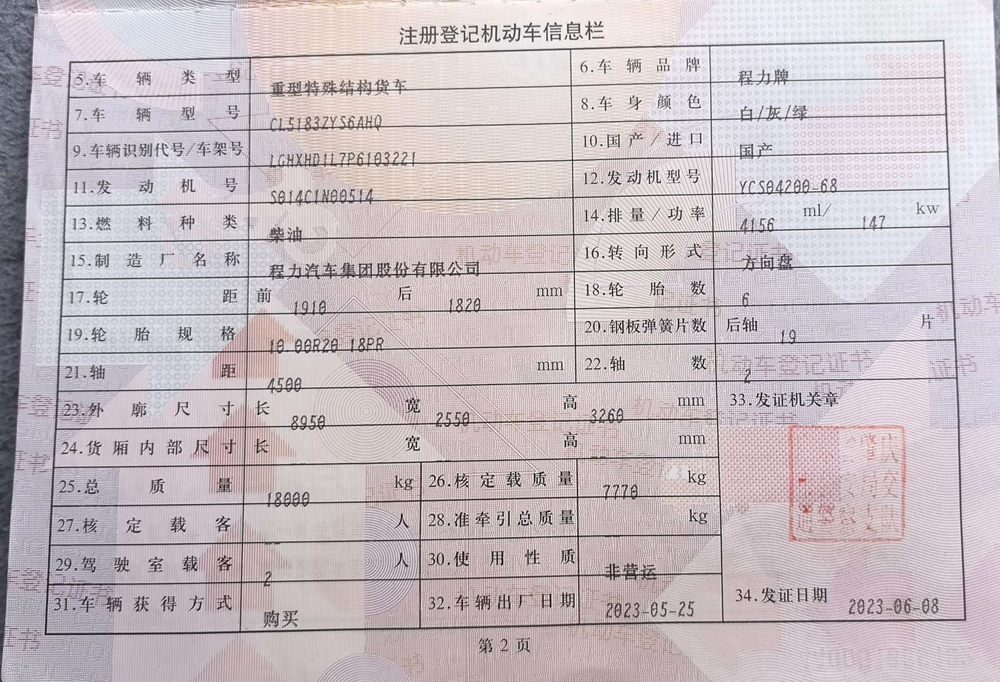 注册登记机动车信息栏
5.车辆类型 重型特殊结构货车 6.车辆品牌 程力牌
7.车辆型号 CL5183ZYS6AHQ 8.车身颜色 白/灰/绿
9.车辆识别代号/车架号 LGHXHD1L7P6103221 10.国产/进口 国产
11.发动机号 S014C1N00514 12.发动机型号 YCS04200-68
13.燃料种类 柴油 14.排量/功率 4156 ml/ 147 kw
15.制造厂名称 程力汽车集团股份有限公司 16.转向形式 方向盘
17.轮距 前 1910 后 1820 mm 18.轮胎数 6
19.轮胎规格 10.00R20 18PR 20.钢板弹簧片数 后轴 19 片
21.轴距 4500 mm 22.轴数 2
23.外廓尺寸 长 8950 宽 2550 高 3260 mm 33.发证机关章
24.货厢内部尺寸 长 -- 宽 -- 高 -- mm
25.总质量 18000 kg 26.核定载质量 7770 kg
27.核定载客 -- 人 28.准牵引总质量 -- kg
29.驾驶室载客 2 人 30.使用性质 非营运
31.车辆获得方式 购买 32.车辆出厂日期 2023-05-25 34.发证日期 2023-06-08
第2页